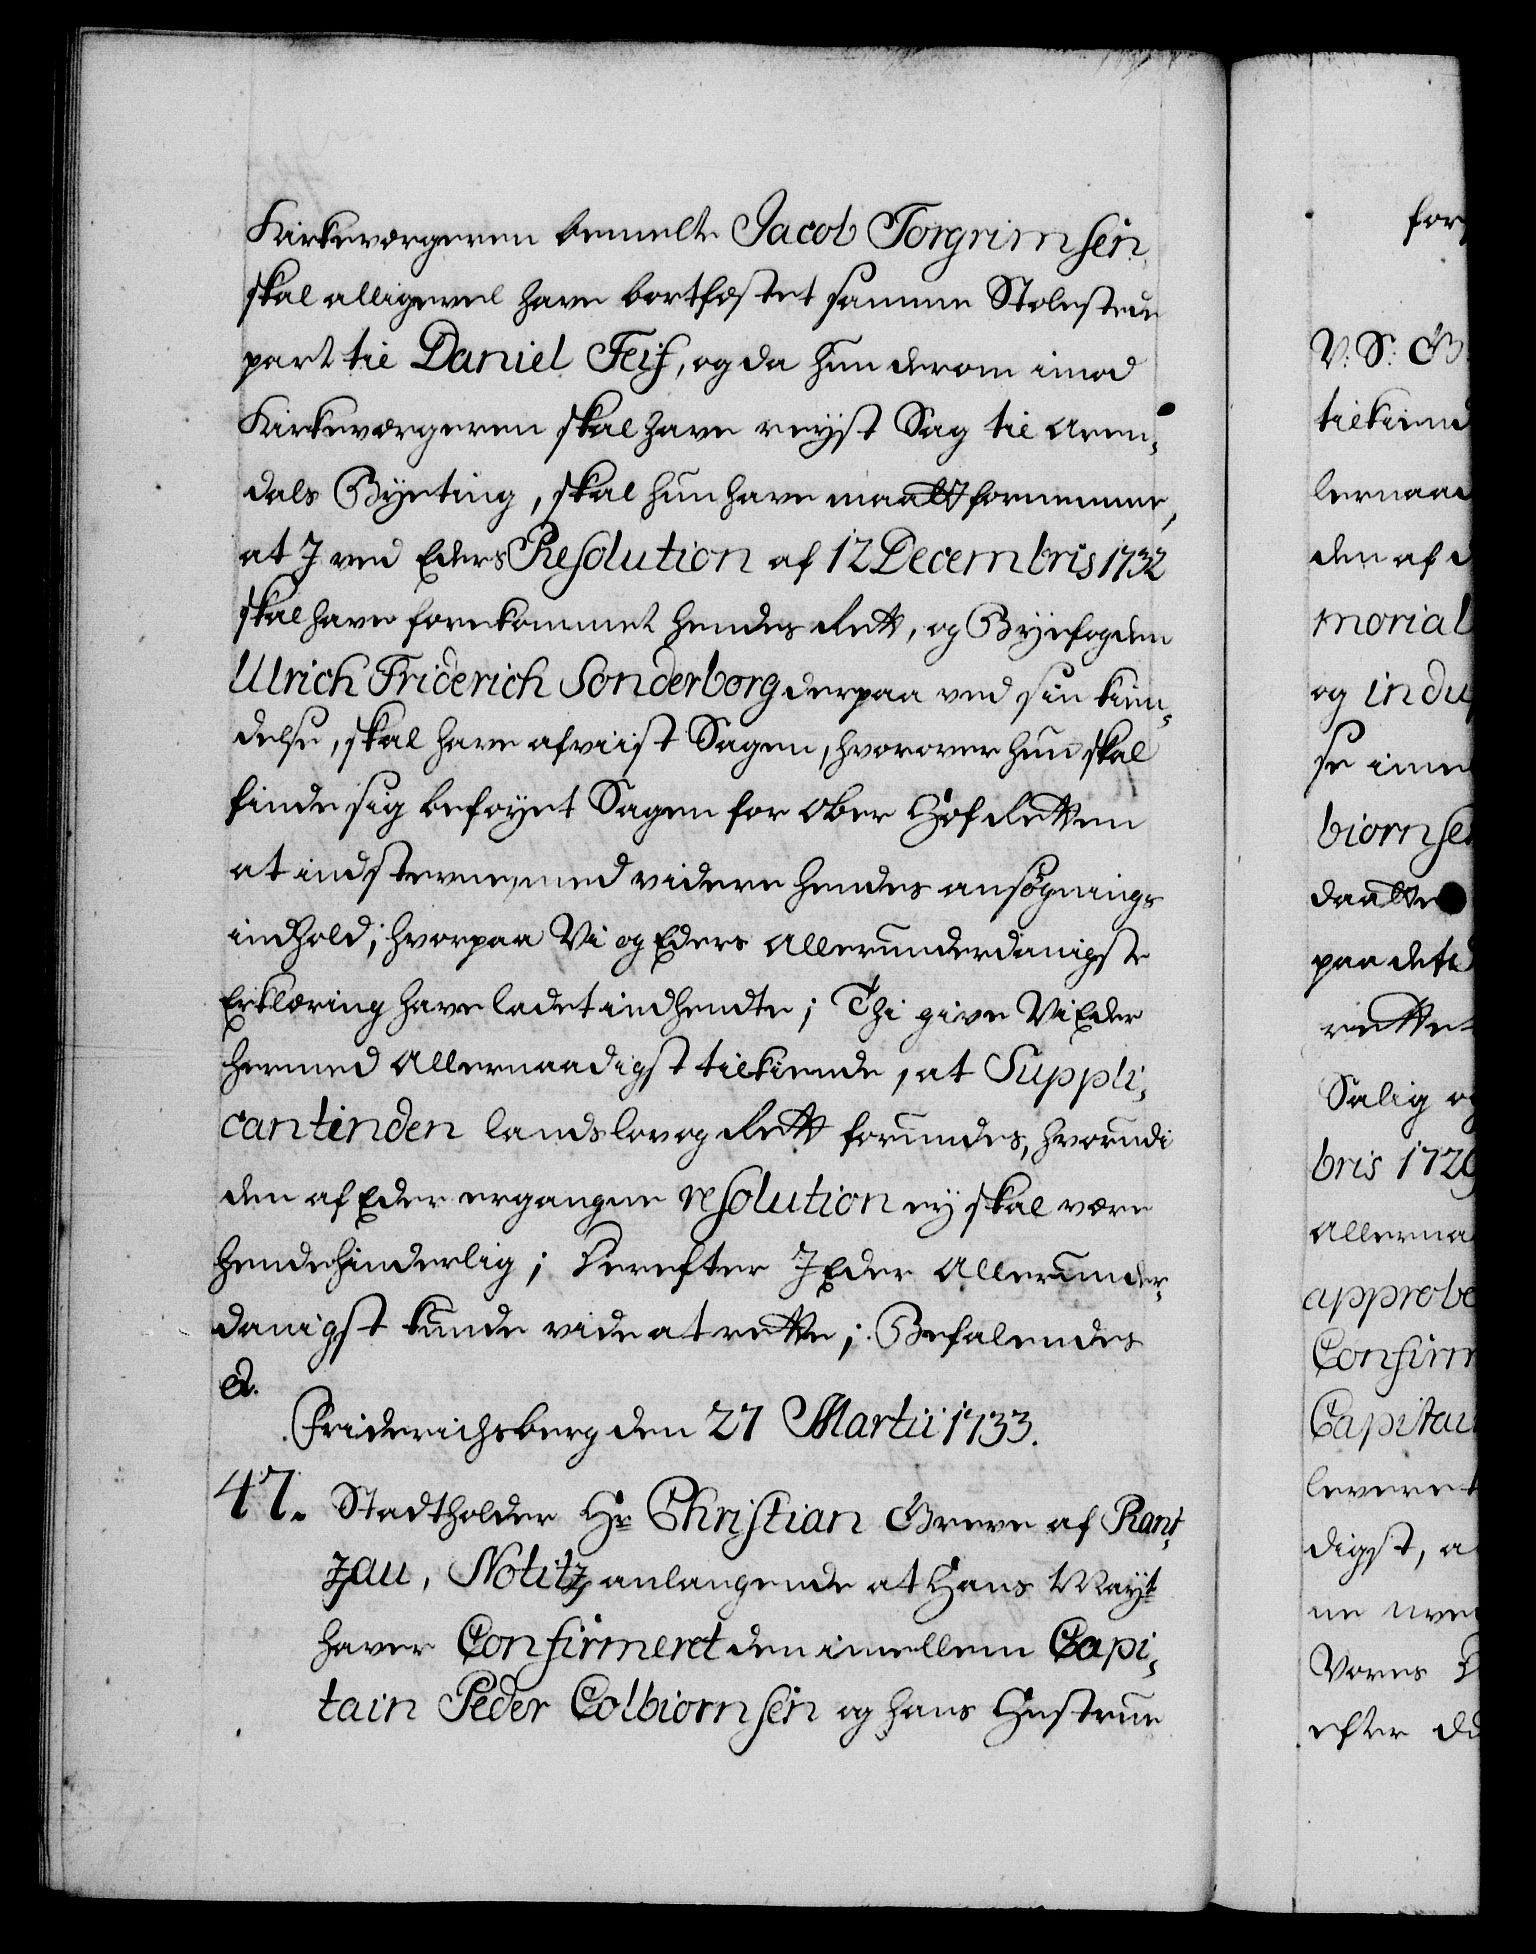 Kirkeværgeren bemelte Jacob Torgrimsen
skal alligevel have bortfæstet samme Stolestade
part til Daniel Feif, og da hun derom imod
Kirkeværgeren skal have reyst Sag til Aren,
dals Byeting, skal hun have maatt fornemme,
at I ved Eders Resolution af 12 Decembris 1732
skal have forekommet hendes Rett, og Byefogden
Ulrich Friderich Sonderborg derpaa ved sin kien,
delse, skal have afviist Sagen, hvorover hun skal
finde sig beføyet Sagen for Ober Hof Retten
at indstevne, med videre hendes ansøgnings
indhold; hvorpaa Vi og Eders allerunderdanigste
Erklæring have ladet indhendte; Thi give Vi Eder
hermed Allernaadigst tilkiende, at Suppli,
cantinden landslov og Rett forundes, hvorudi
den af Eder ergangne resolution ey skal være
hende hinderlig; Derefter I Eder Allerunder,
danigst kunde vide at rette; Befalendes
&.
Friderichsberg den 27 Martii 1733.
47. Stadtholder Hr Christian Greve af Rant,
zau, Notitz anlangende at Hans Mayt
haver Confirmeret den imellem Capi,
tain Peder Colbiornsen og hans Hustrue
for
V: S: G
tilkiend
lernaad
den af
morial
og indu
se ime
biornse
daatte
paa det
rettet
Salig og
bris 1729
Allerna
approbe
Confirm
Capitai
leveret
digst, a
ne
Vores
efter